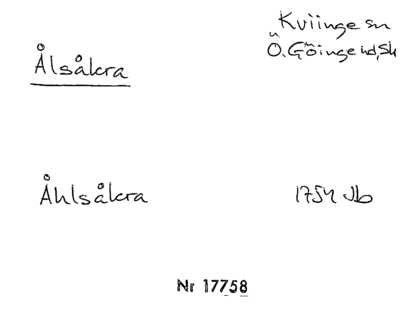 Kviinge sn
Ö. Göinge hd, Sk
Ålsåkra
Åhlsåkra 1754 Jb
Nr 17758